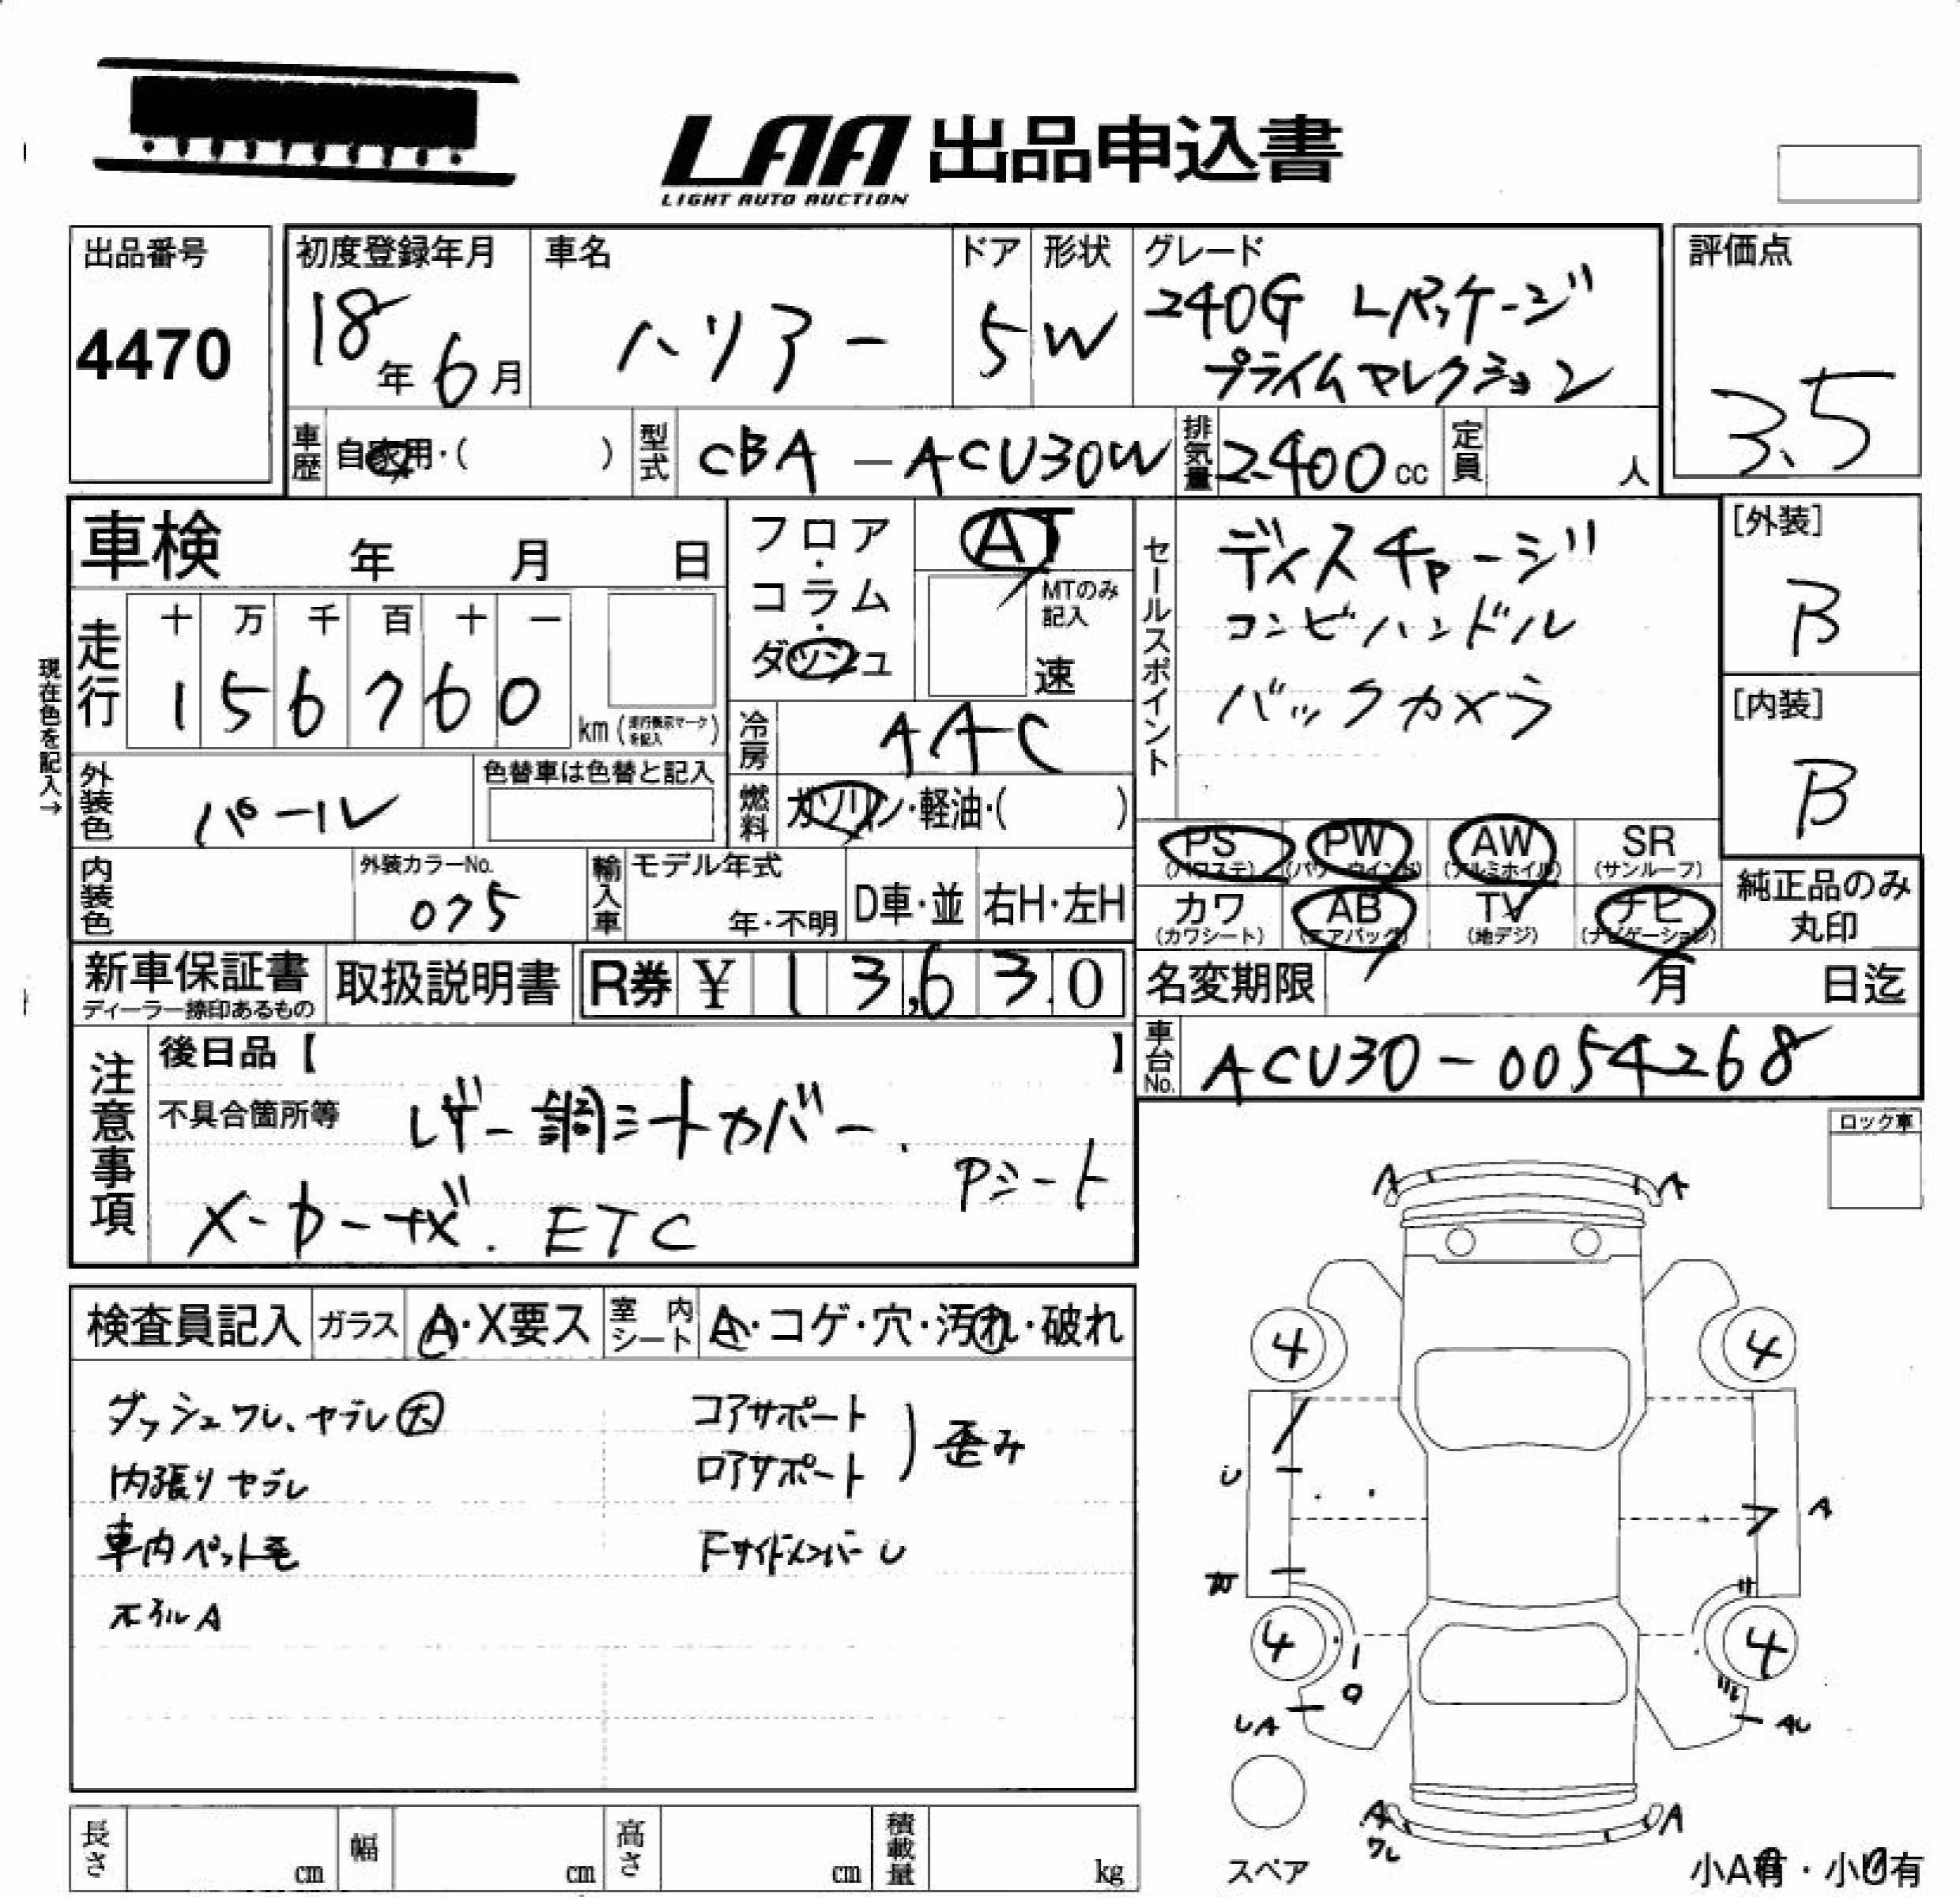 LAA 出品申込書
LIGHT AUTO AUCTION
出品番号
4470
初度登録年月
18年 6月
車名
ハリアー
ドア
5
形状
W
グレード
240G Lパッケージ
プライムセレクション
評価点
3.5
車歴 自家用・( )
型式 CBA-ACU30W
排気量 2400cc
定員 人
車検 年 月 日
フロア・コラム・ダッシュ
AT
MTのみ記入
速
セールスポイント
ディスチャージ
コンビハンドル
バックカメラ
[外装]
B
[内装]
B
現在色を記入→
走行
十 万 千 百 十 一
1 5 6 7 6 0
km (走行表示マークを記入)
冷房 AAC
燃料 ガソリン・軽油・( )
外装色 パール
色替車は色替と記入
内装色
外装カラーNo.
075
輸入車
モデル年式
年・不明
D車・並
右H・左H
PS (パワステ)
PW (パワーウインド)
AW (アルミホイル)
SR (サンルーフ)
カワ (カワシート)
AB (エアバッグ)
TV (地デジ)
ナビ (ナビゲーション)
純正品のみ丸印
新車保証書
ディーラー捺印あるもの
取扱説明書
R券 ¥ 13,630
名変期限 月 日迄
車台No. ACU30-0054268
注意事項
後日品【 】
不具合箇所等 レザー調シートカバー.
Pシート
メーカーナビ. ETC
ロック車
検査員記入
ガラス A・X要ス
室内シート
・コゲ・穴・汚れ・破れ
ダッシュワレ、ヤブレ大
内張りヤブレ
車内ペット毛
ホイルA
コアサポート
ロアサポート
歪み
Fサイドメンバー U
A A
4 4
U
A
4 4
UA
AU
A
ワレ
A
スペア
小A有・小U有
長さ cm
幅 cm
高さ cm
積載量 kg